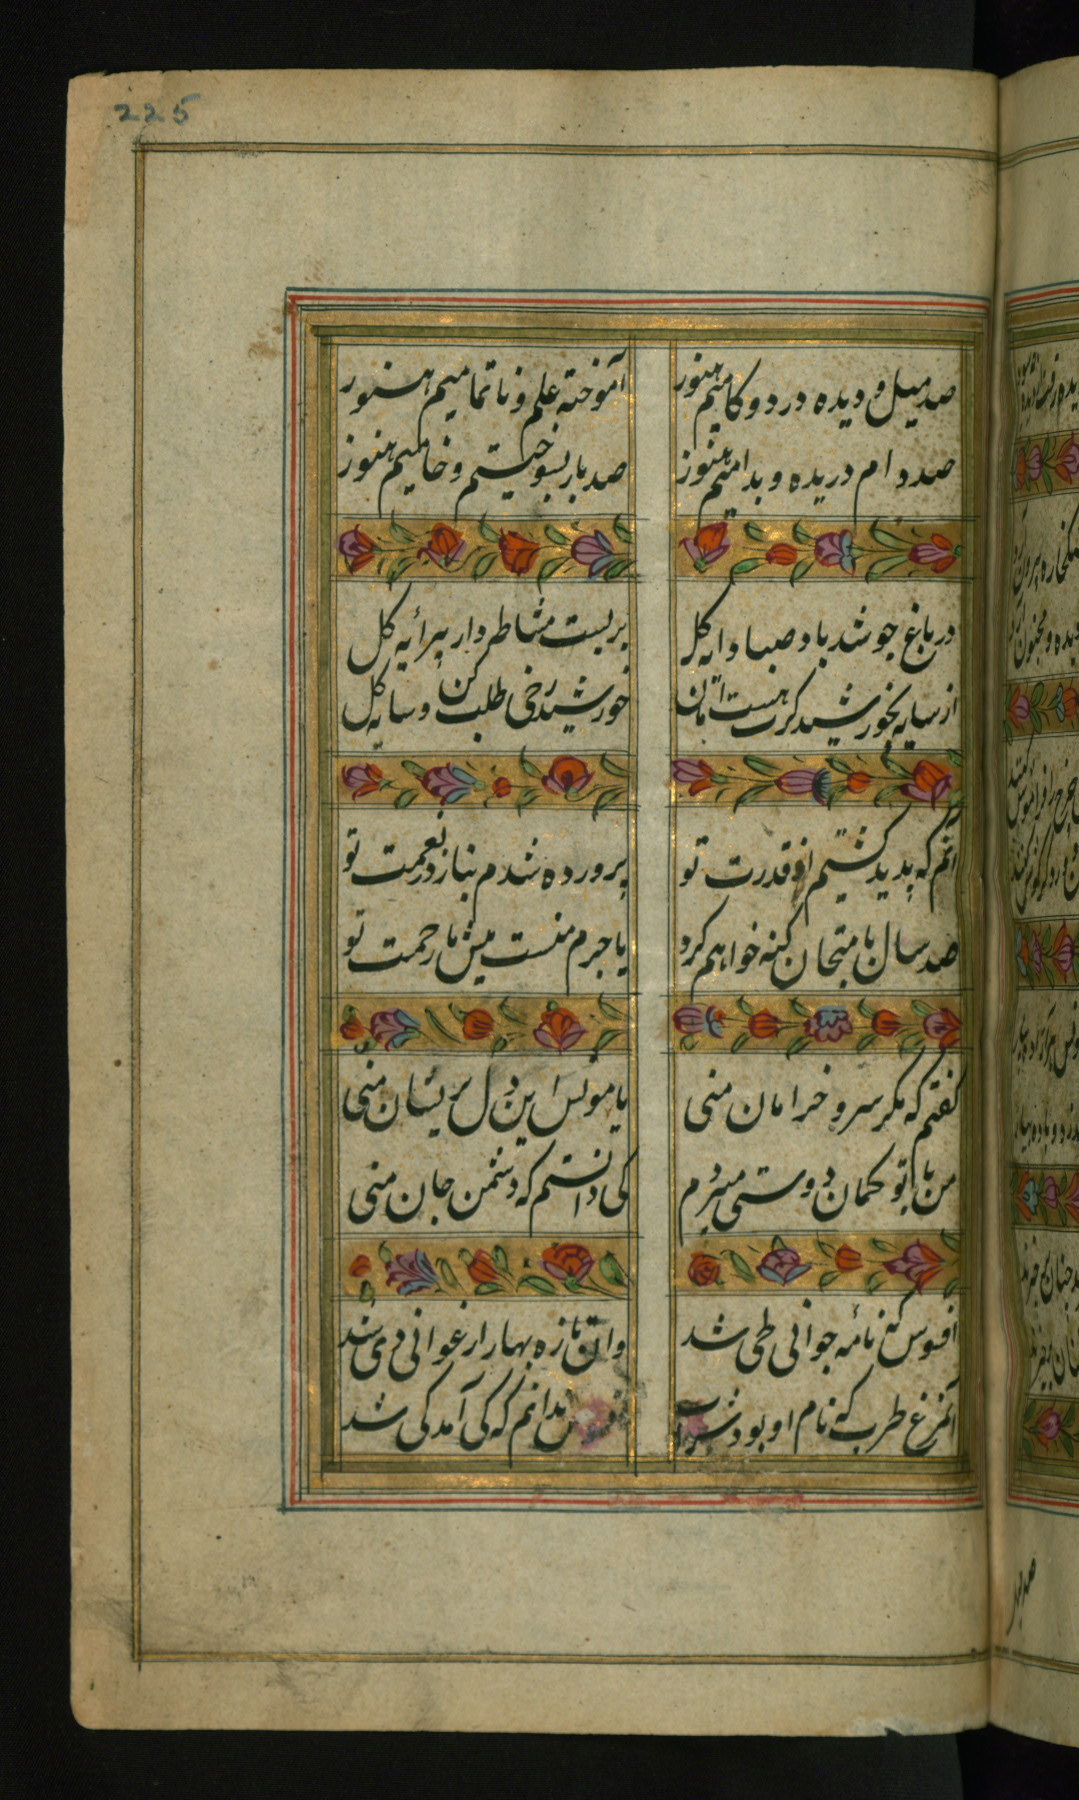 225
صد میل و دیده در دو کامیم هنوز
آموخته علم و ناتمامیم هنوز
صد دام دریده و بدامیم هنوز
صد بار بسوختیم و خامیم هنوز
در باغ چو شد باد صبا دایه گل
بربست مشاطه وار پیرایه گل
از سایه بخورشید گرت هست امان
خورشید رخی طلب کن و سایه گل
آنم که پدید گشتم از قدرت تو
پرورده شدم بناز در نعمت تو
صد سال بامتحان گنه خواهم کرد
یا جرم منست بیش یا رحمت تو
گفتم که مگر سرو خرامان منی
یا مونس این دل پریشان منی
من با تو گمان دوستی میبردم
کی دانستم که دشمن جان منی
افسوس که نامه جوانی طی شد
وان تازه بهار ارغوانی دی شد
آن مرغ طرب که نام او بود شباب
افسوس ندانم که کی آمد کی شد